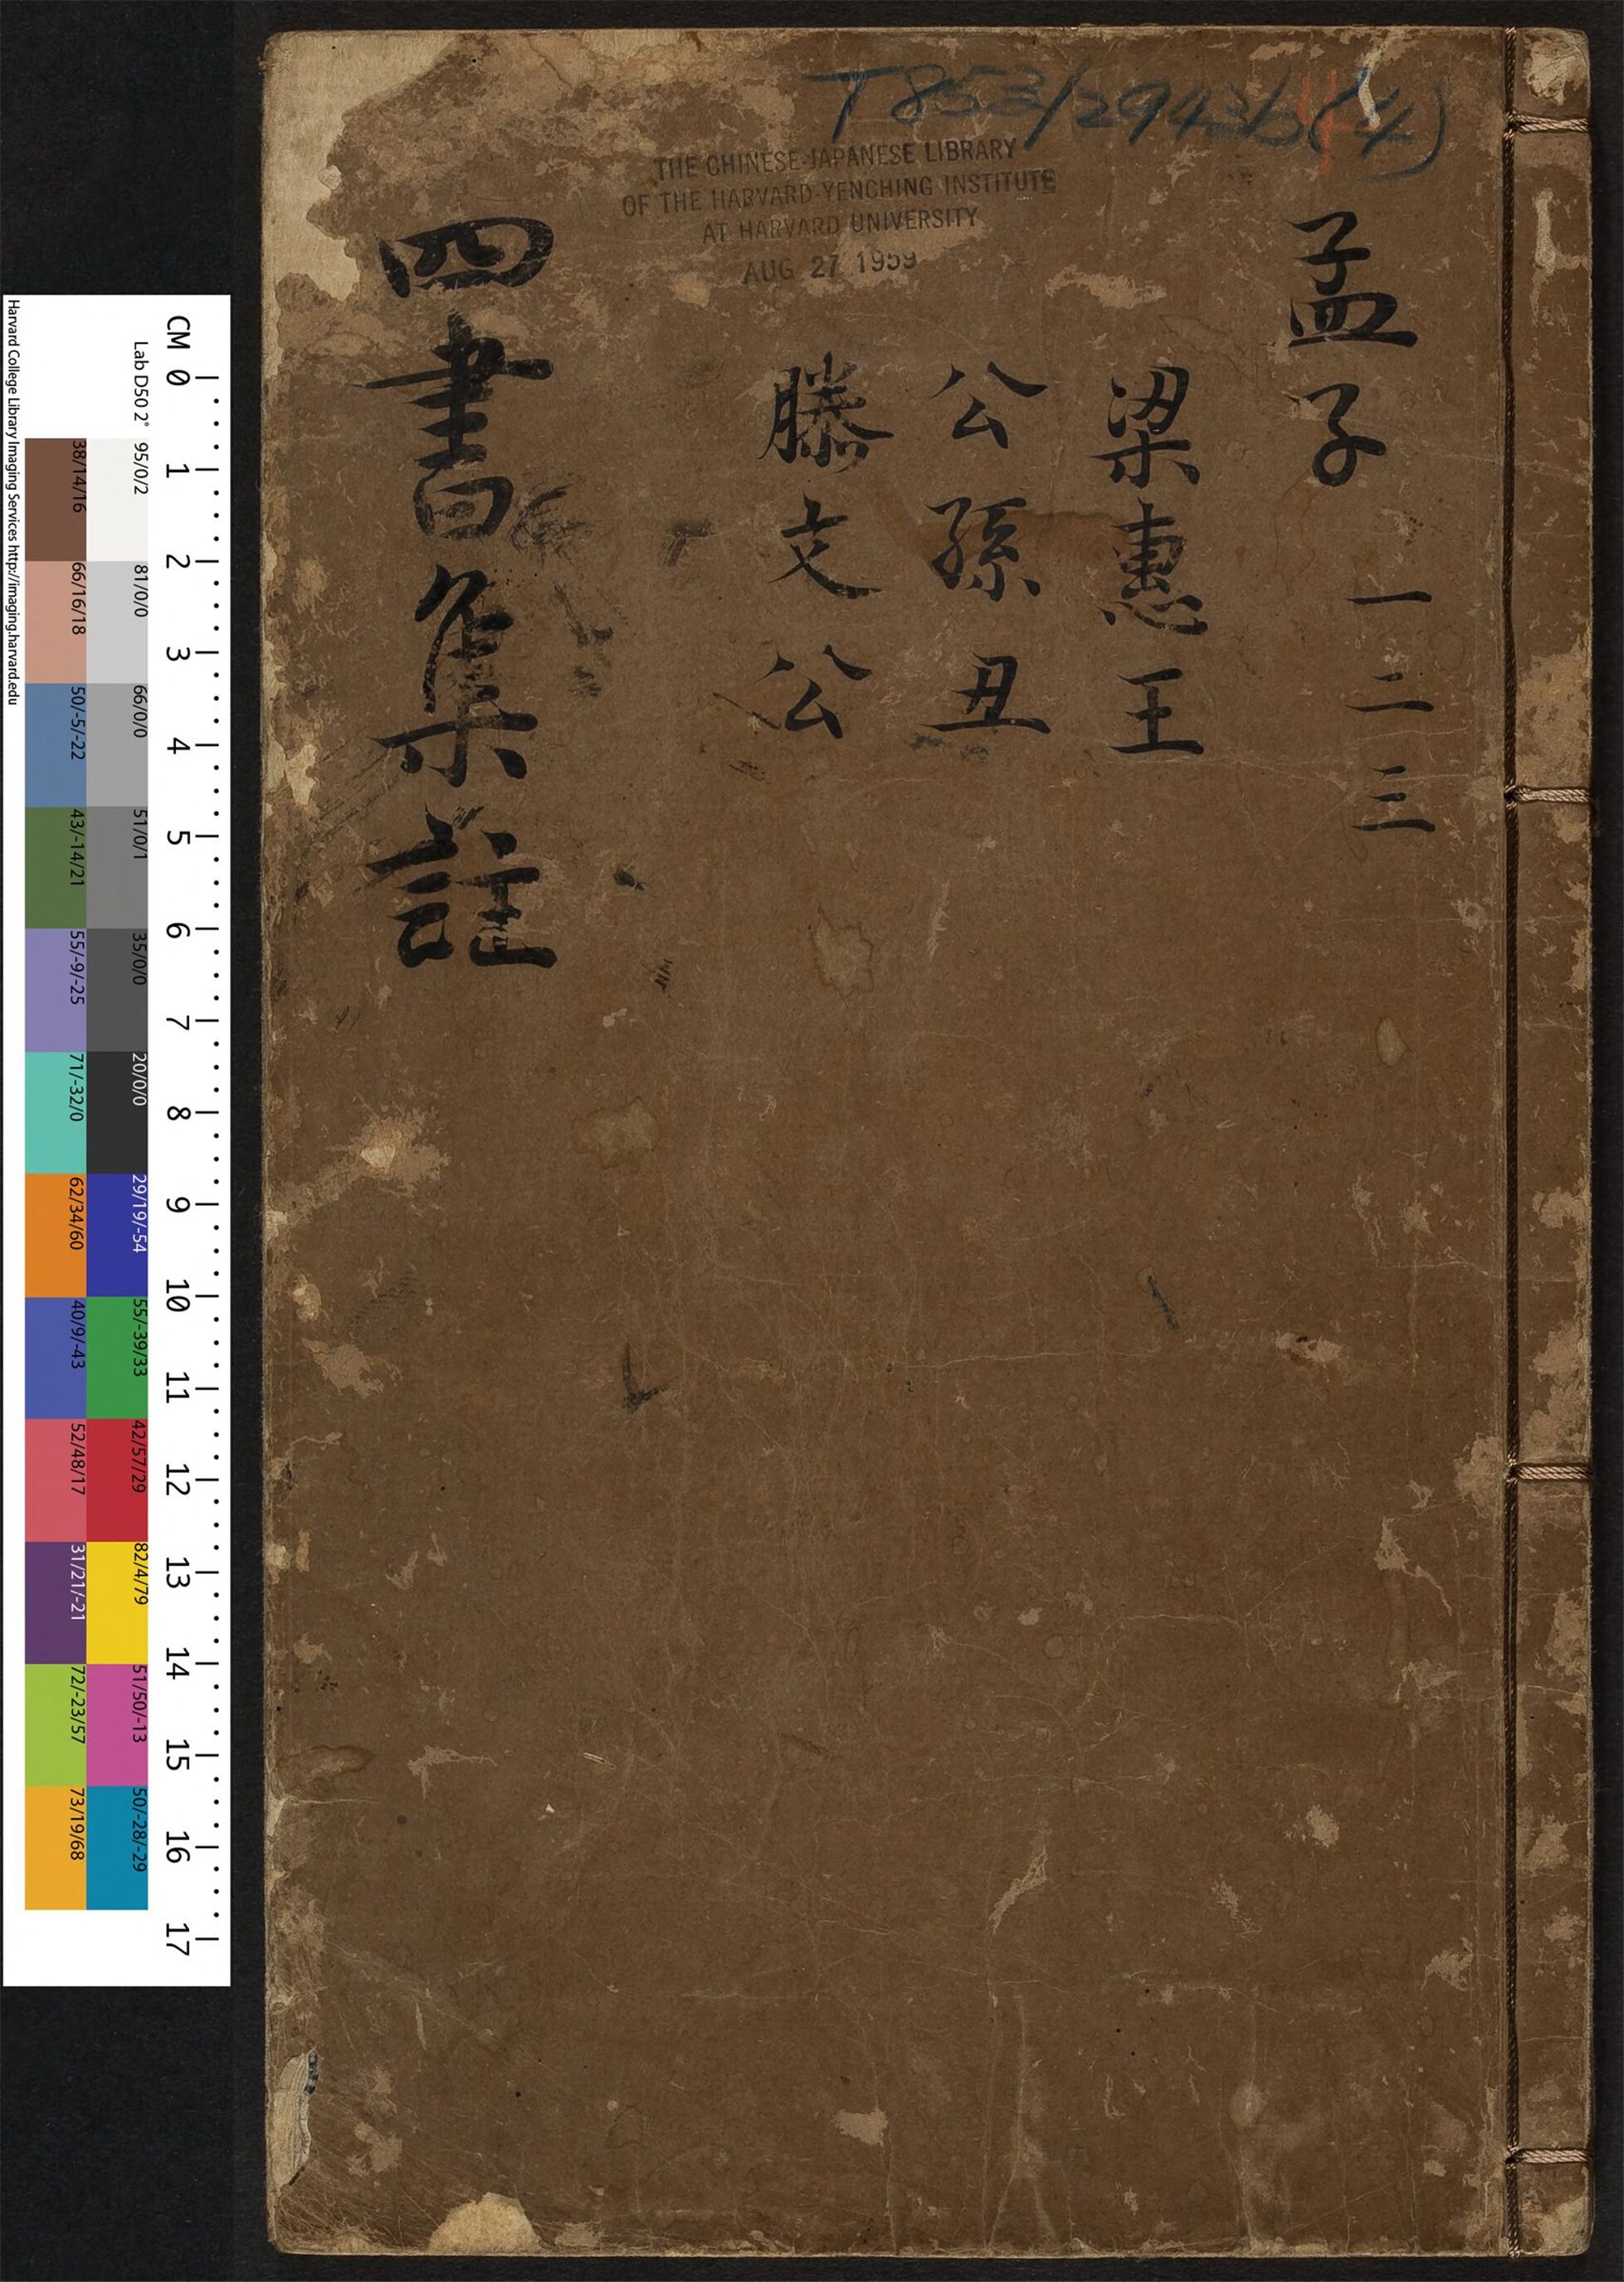 T853/2943b(4)
THE CHINESE-JAPANESE LIBRARY
OF THE HARVARD-YENCHING INSTITUTE
AT HARVARD UNIVERSITY
AUG 27 1959
孟子 一二三
梁惠王
公孫丑
滕文公
四書集註
CM 0 1 2 3 4 5 6 7 8 9 10 11 12 13 14 15 16 17
Lab D50 2° 95/0/2 81/0/0 66/0/0 51/0/1 35/0/0 20/0/0 29/19/-54 55/-39/33 42/57/29 82/4/79 51/50/-13 50/-28/-29
38/14/16 66/16/18 50/-5/-22 43/-14/21 55/-9/-25 71/-32/0 62/34/60 40/9/-43 52/48/17 31/21/-21 72/-23/57 73/19/68
Harvard College Library Imaging Services http://imaging.harvard.edu